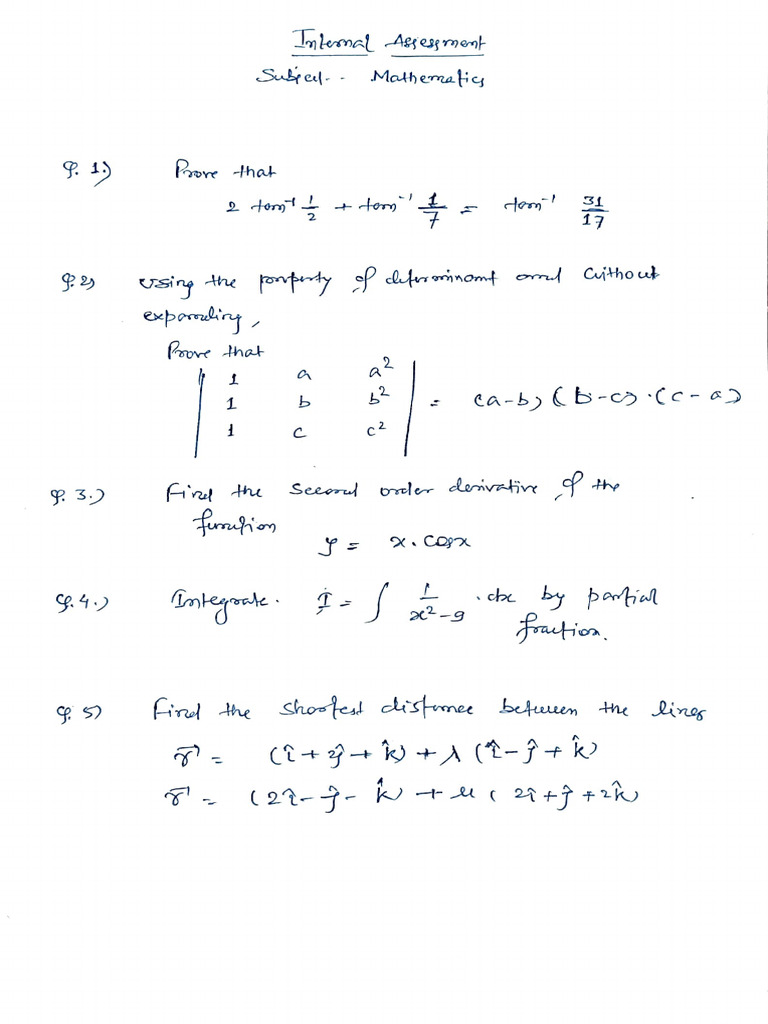 Internal Assessment
Subject.. Mathematics
Q. 1.) Prove that
2 tan⁻¹ 1/2 + tan⁻¹ 1/7 = tan⁻¹ 31/17
Q.2) Using the property of determinant and without
expanding,
Prove that
| 1 a a² |
| 1 b b² | = (a-b) (b-c) . (c-a)
| 1 c c² |
Q. 3.) Find the second order derivative of the
function
y = x . cosx
Q. 4.) Integrate. I = ∫ 1/(x²-9) . dx by partial
fraction.
Q. 5) Find the shortest distance between the lines
r⃗ = (î + 2ĵ + k̂) + λ (î - ĵ + k̂)
r⃗ = (2î - ĵ - k̂) + μ ( 2î + ĵ + 2k̂)